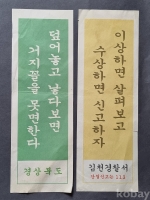 덮어놓고 낳다보면
거지꼴을 못면한다
경상북도
이상하면 살펴보고
수상하면 신고하자
김천경찰서
간첩신고는 113
Rbay